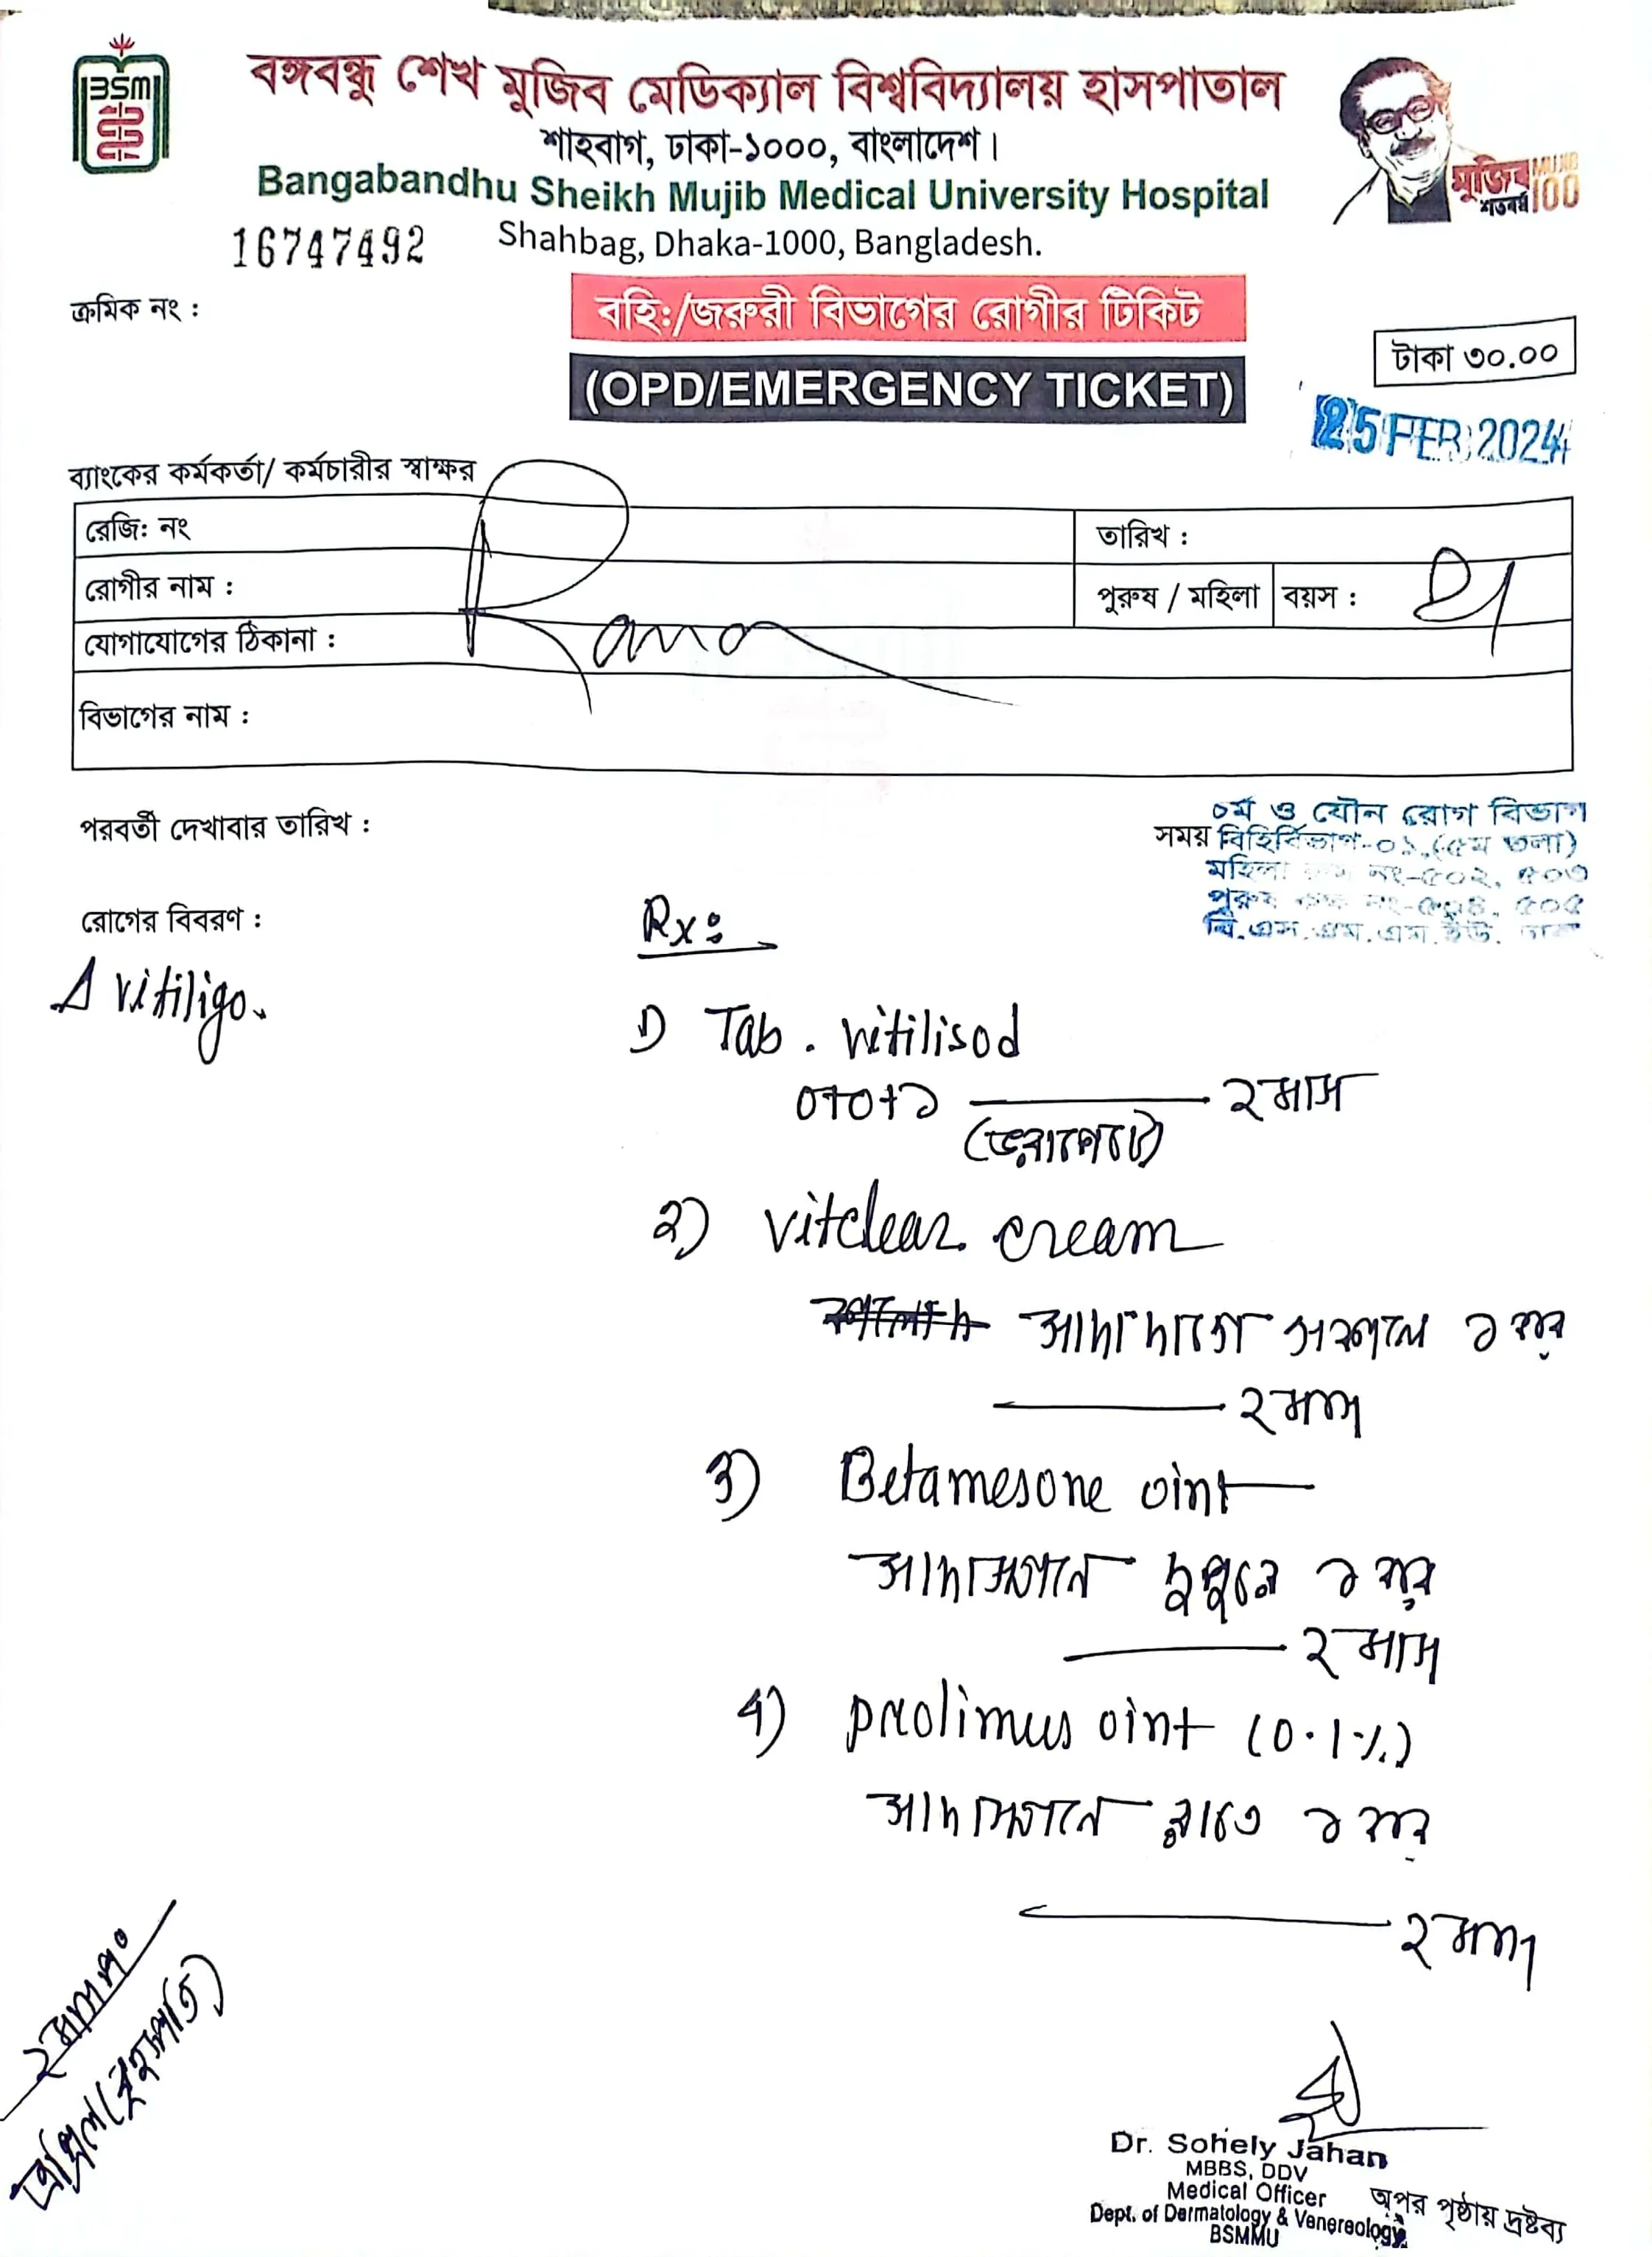 BSM
বঙ্গবন্ধু শেখ মুজিব মেডিক্যাল বিশ্ববিদ্যালয় হাসপাতাল
শাহবাগ, ঢাকা-১০০০, বাংলাদেশ।
Bangabandhu Sheikh Mujib Medical University Hospital
Shahbag, Dhaka-1000, Bangladesh.
মুজিব শতবর্ষ MUJIB 100
16747492
ক্রমিক নং :
বহিঃ/জরুরী বিভাগের রোগীর টিকিট
(OPD/EMERGENCY TICKET)
টাকা ৩০.০০
25 FEB 2024
ব্যাংকের কর্মকর্তা/ কর্মচারীর স্বাক্ষর
রেজিঃ নং
তারিখ :
রোগীর নাম :
Rana
পুরুষ / মহিলা
বয়স :
যোগাযোগের ঠিকানা :
বিভাগের নাম :
পরবর্তী দেখাবার তারিখ :
সময়
চর্ম ও যৌন রোগ বিভাগ
বহির্বিভাগ-০১,(৫ম তলা)
মহিলা নং-৫০২, ৫০৩
পুরুষ নং-৫০৪, ৫০৫
বি.এস.এম.এম.ইউ. ঢাকা
রোগের বিবরণ :
Δ vitiligo.
Rx:
1) Tab. vitilisod
০+০+১ ——— ২ মাস
(ভরাপেটে)
২) vitclear cream
সাদা দাগে সকালে ১ বার
——— ২ মাস
3) Betamesone oint
সাদাস্থানে দুপুরে ১ বার
——— ২ মাস
4) prolimus oint (0.1%)
সাদাস্থানে রাতে ১ বার
——— ২ মাস
২ মাস পর
(বৃহস্পতি)
Dr. Sohely Jahan
MBBS, DDV
Medical Officer
Dept. of Dermatology & Venereology
BSMMU
অপর পৃষ্ঠায় দ্রষ্টব্য